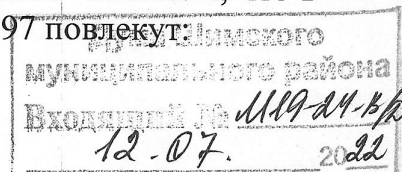 97 повлекут:
Дума Шимского
муниципального района
Входящий № М19-24-В/2
12.07. 2022